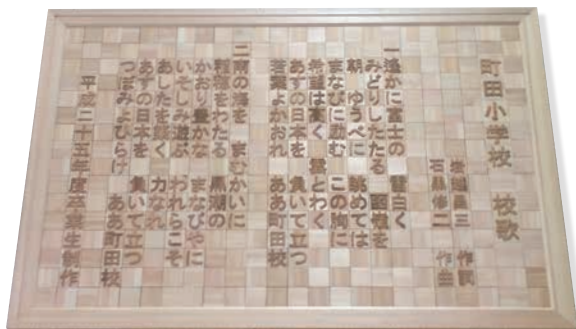 町田小学校 校歌
作詞
石黒修二 作曲
一 遥かに富士の 雪白く
みどりしたたる 函嶺を
朝ゆうべに 眺めては
まなびに励む この胸に
希望は高く 雲とわく
あすの日本を 負いて立つ
若葉よかおれ ああ町田校
二 南の海を まむかいに
をわたる 黒潮の
かおり豊かな まなびやに
いそしみ遊ぶ われらこそ
あしたを築く 力なれ
あすの日本を 負いて立つ
つぼみよひらけ ああ町田校
平成二十五年度卒業生制作